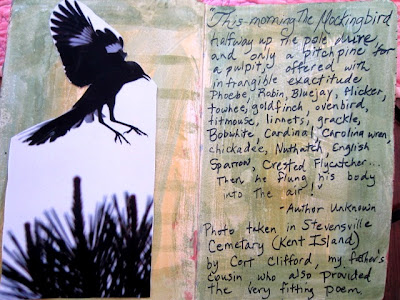 "This morning The Mockingbird,
halfway up the pole pure,
and only a pitchpine for
a pulpit, offered with
intrangible exactitude
Phoebe, Robin, Bluejay, flicker,
towhee, goldfinch, ovenbird,
titmouse, linnets, grackle,
Bobwhite Cardinal, Carolina wren,
chickadee, Nuthatch English
Sparrow, Crested Flycatcher...
Then he flung his body
into The air!"
-Author Unknown
Photo taken in Stevensville
Cemetary (Kent Island)
by Cort Clifford, my father's
cousin who also provided
the very fitting poem